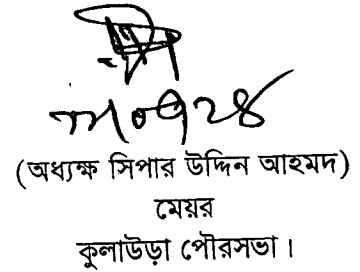 (অধ্যক্ষ সিপার উদ্দিন আহমদ)
মেয়র
কুলাউড়া পৌরসভা।